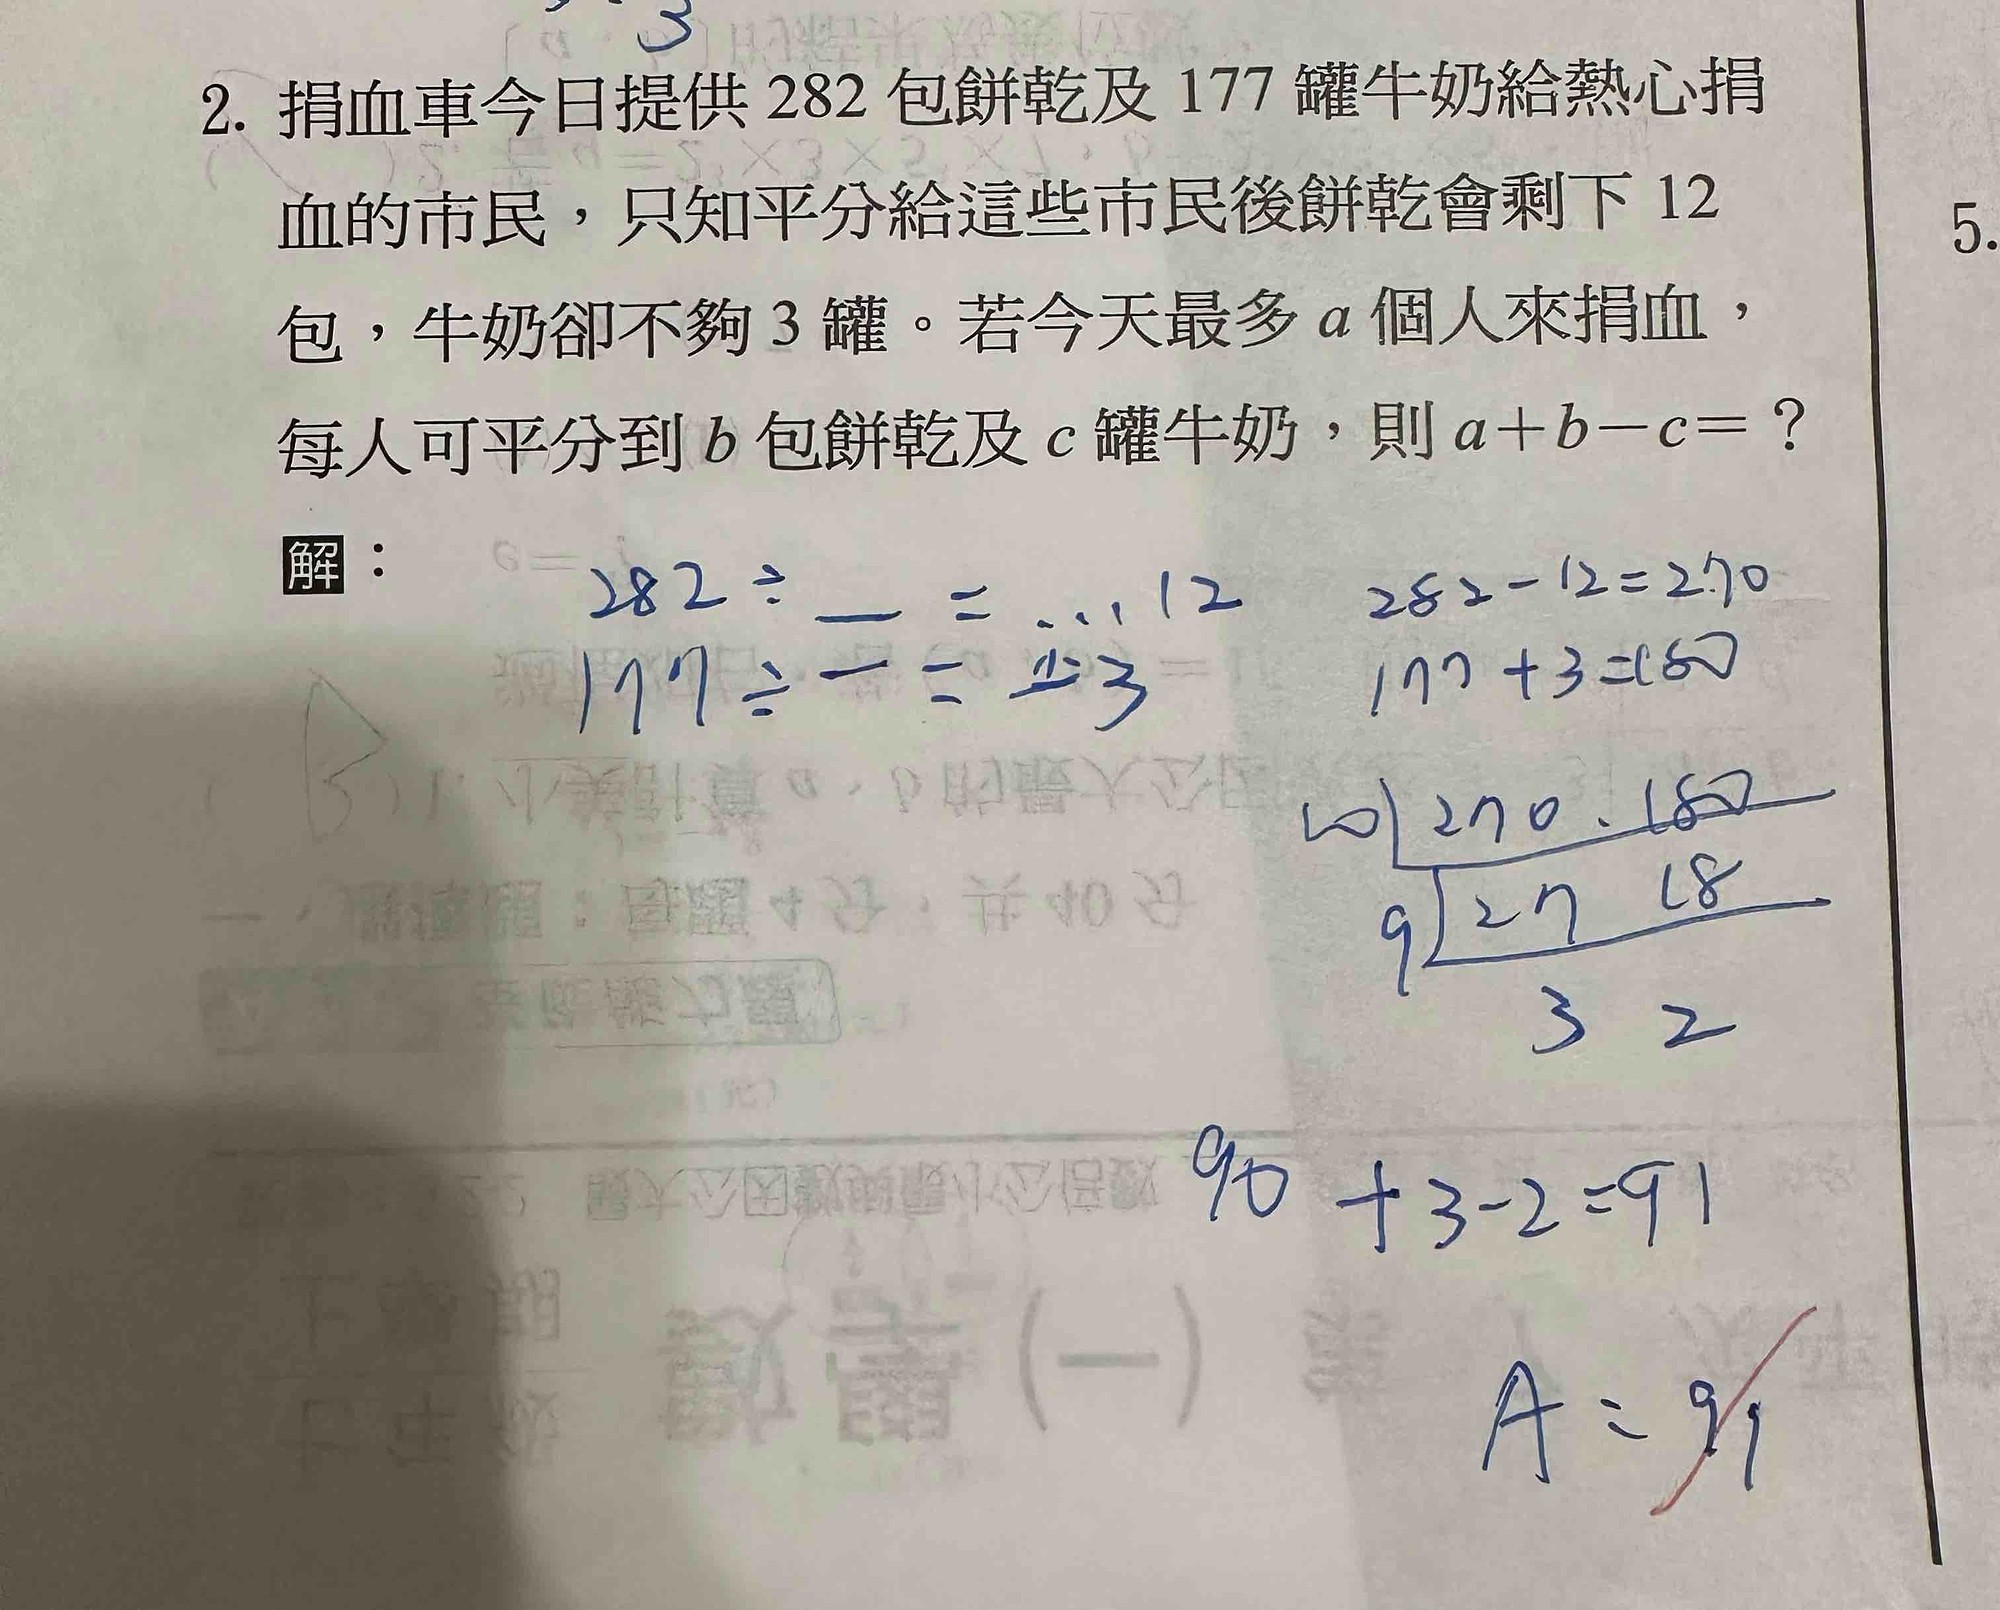 3
2. 捐血車今日提供 282 包餅乾及 177 罐牛奶給熱心捐
血的市民，只知平分給這些市民後餅乾會剩下 12
包，牛奶卻不夠 3 罐。若今天最多 a 個人來捐血，
每人可平分到 b 包餅乾及 c 罐牛奶，則 a＋b－c＝？
5.
解：
282 ÷ __ = ... 12
177 ÷ — =
3
282 - 12 = 270
177 + 3 = 180
10 270 . 180
9 27 18
3 2
90 + 3 - 2 = 91
A = 91